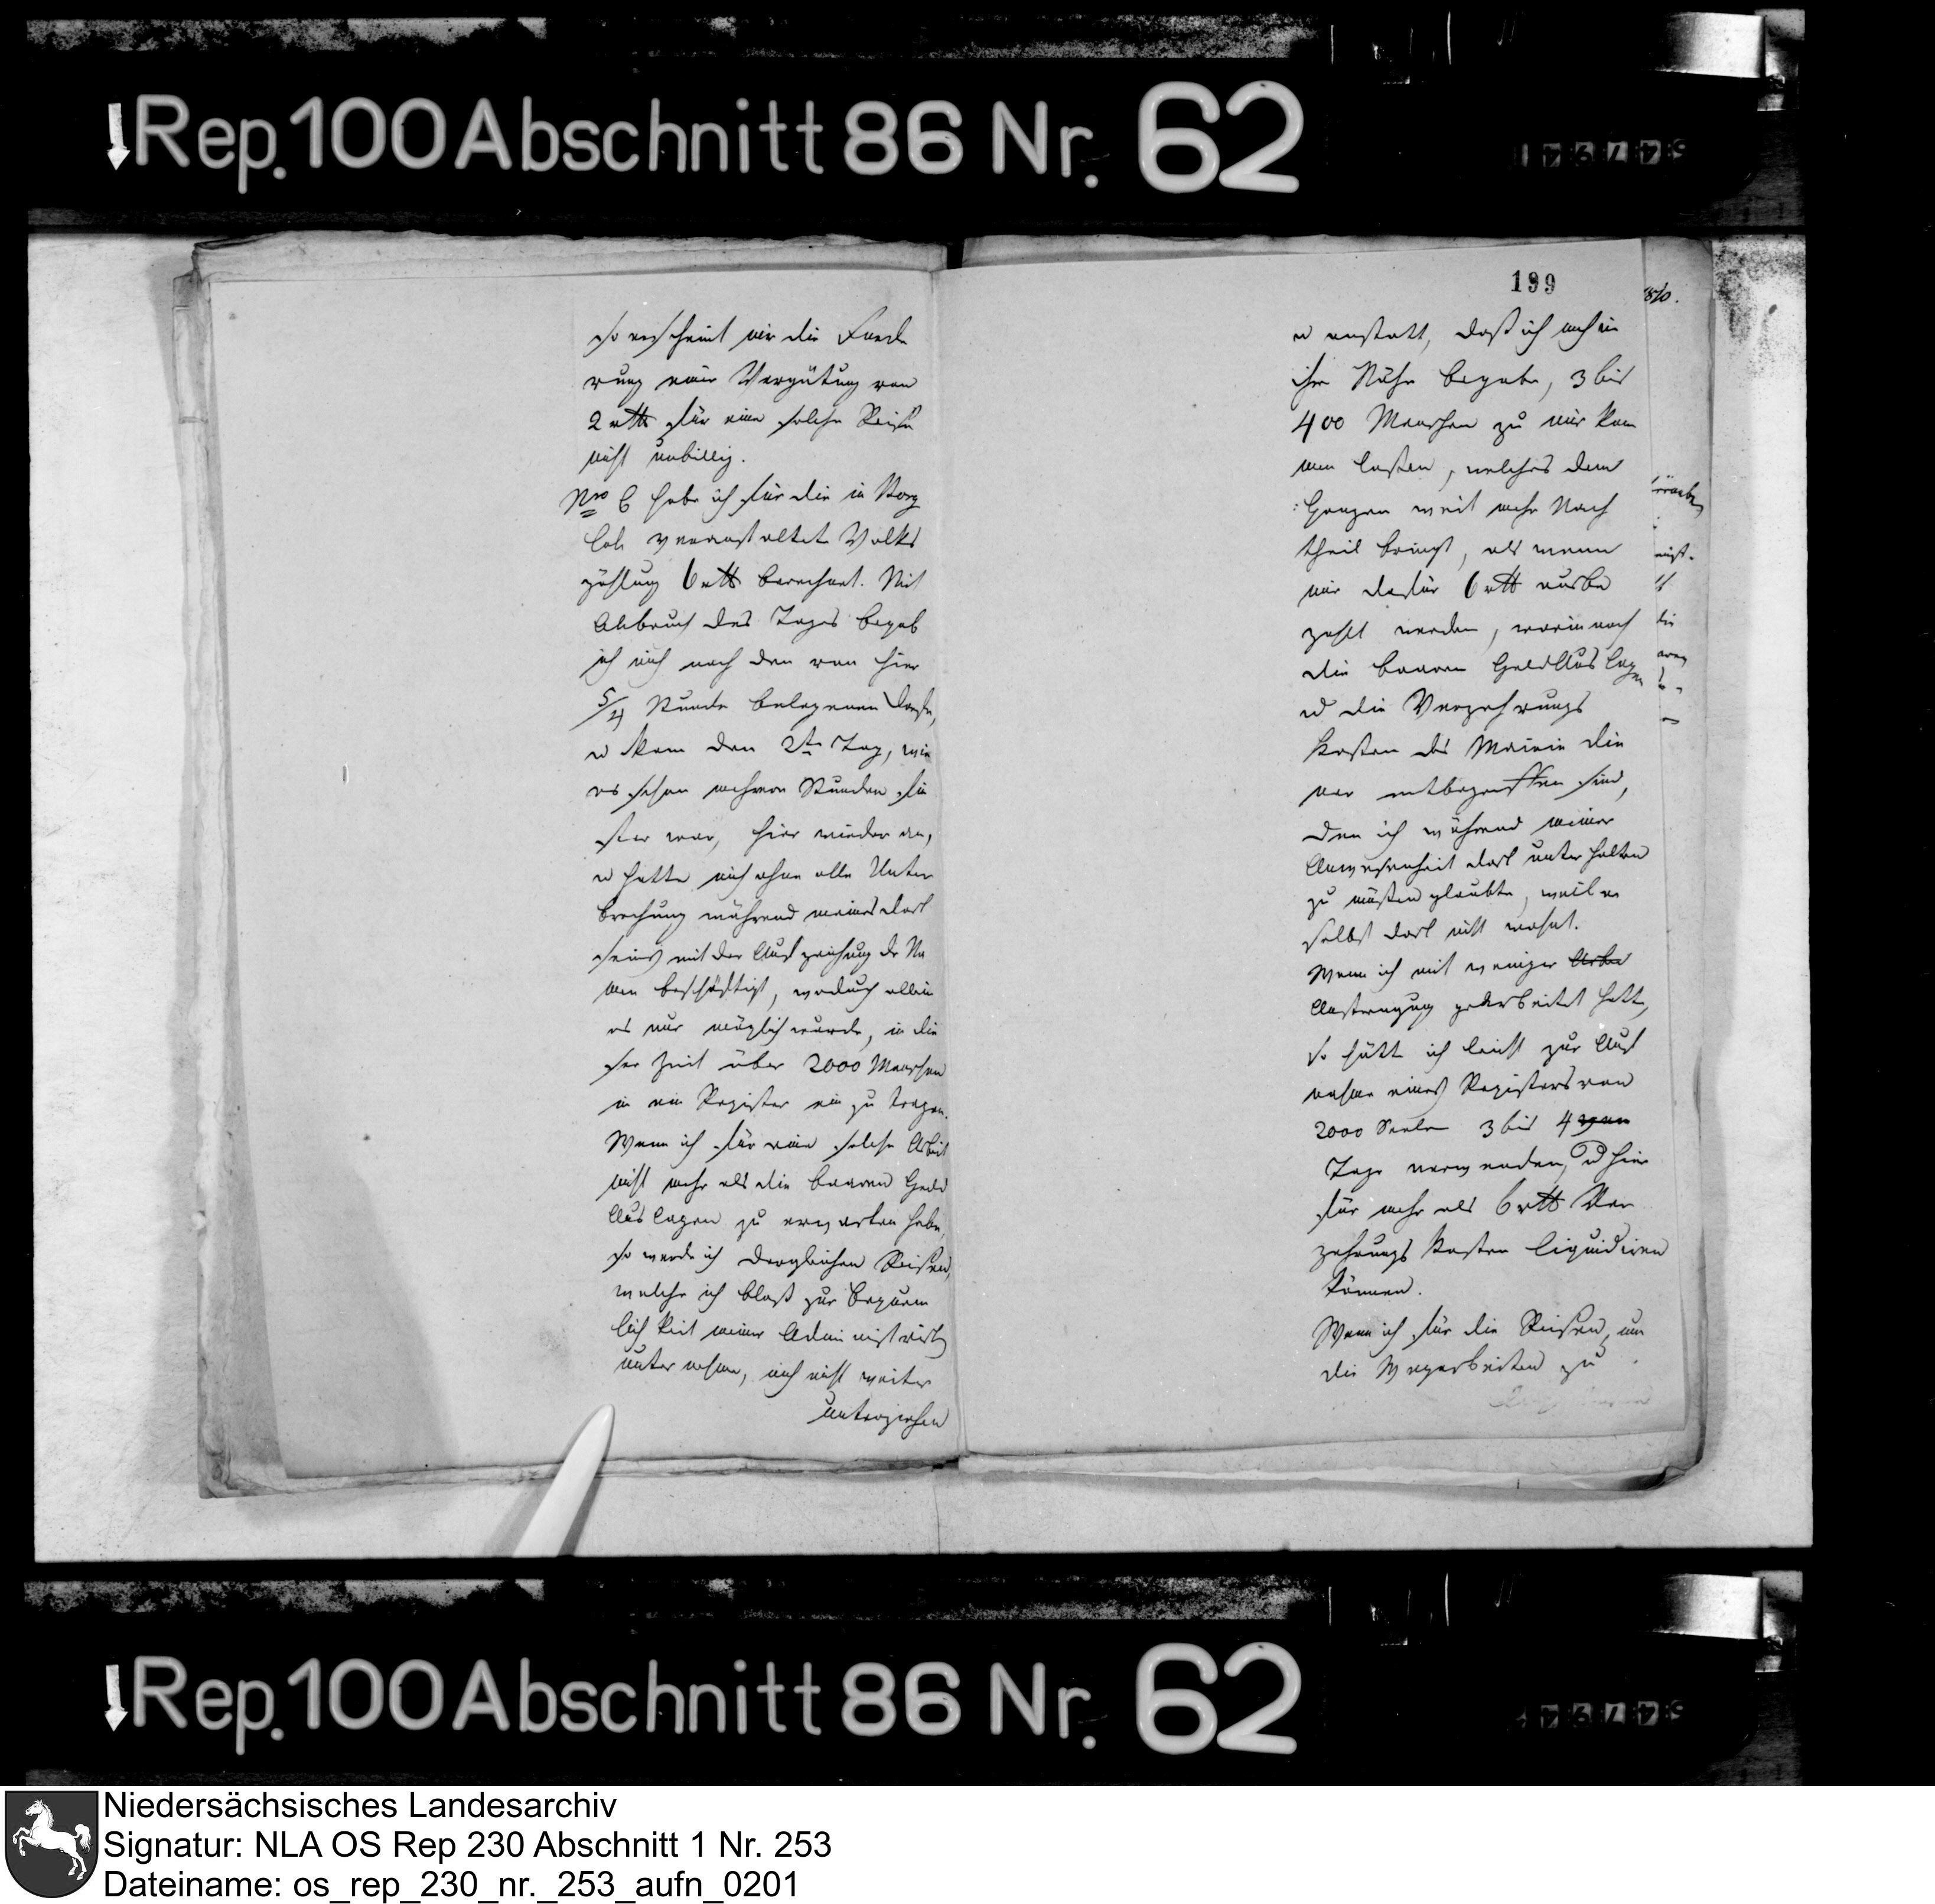 Rep. 100 Abschnitt 86 Nr. 62
so erscheint mir die Forde
rung einer Vergütung von
2 rtt für eine solche Reise
nicht unbillig.
Nro 6 habe ich für die in Borg
loh veranstaltete Volks
zählung 6 rtt berechnet. Mit
Anbruch des Tages begab
ich mich nach den von hier
5/4 Stunde belegenen Dorfe,
u kam den 2ten Tag, wie
es schon mehrere Stunden fin
ster war, hier wieder an,
u hatte mich ohne alle Unter
brechung während meines dort
seins mit der Aufzeichnung der Na
men beschäftigt, wodurch allein
es nur möglich wurde, in die
ser Zeit über 2000 Menschen
in ein Register ein zu tragen.
Wenn ich für eine solche Arbeit
nicht mehr als die baaren Geld
Auslagen zu erwarten habe,
so werde ich dergleichen Reisen,
welche ich bloß zur Bequem
lichkeit meiner Administrirten
unternehme, mich nicht weiter
unterziehen
199
u anstatt, daß ich mich in
ihre Nähe begebe, 3 bis
400 Menschen zu mir kom
men lassen, welches dem
Ganzen weit mehr Nach
theil bringt, als wenn
mir dafür 6 rtt ausbe
zahlt werden, worin noch
die baaren Geld Auslagen
u die Verzehrungs
kosten des Mairie Die
ner mitbegriffen sind,
den ich während meiner
Anwesenheit dort unterhalten
zu müssen glaubte, weil er
selbst dort nicht wohnt.
Wenn ich mit weniger Arbe
Anstrengung gearbeitet hätte,
so hätte ich leicht zur Auf
nahme eines Registers von
2000 Seelen 3 bis 4
Tage verwenden, u hier
für mehr als 6 rtt Ver
zehrungs kosten liquidiren
können.
Wenn ich für die Reisen, um
die Wegarbeiten zu
Rep. 100 Abschnitt 86 Nr. 62
Niedersächsisches Landesarchiv
Signatur: NLA OS Rep 230 Abschnitt 1 Nr. 253
Dateiname: os_rep_230_nr._253_aufn_0201